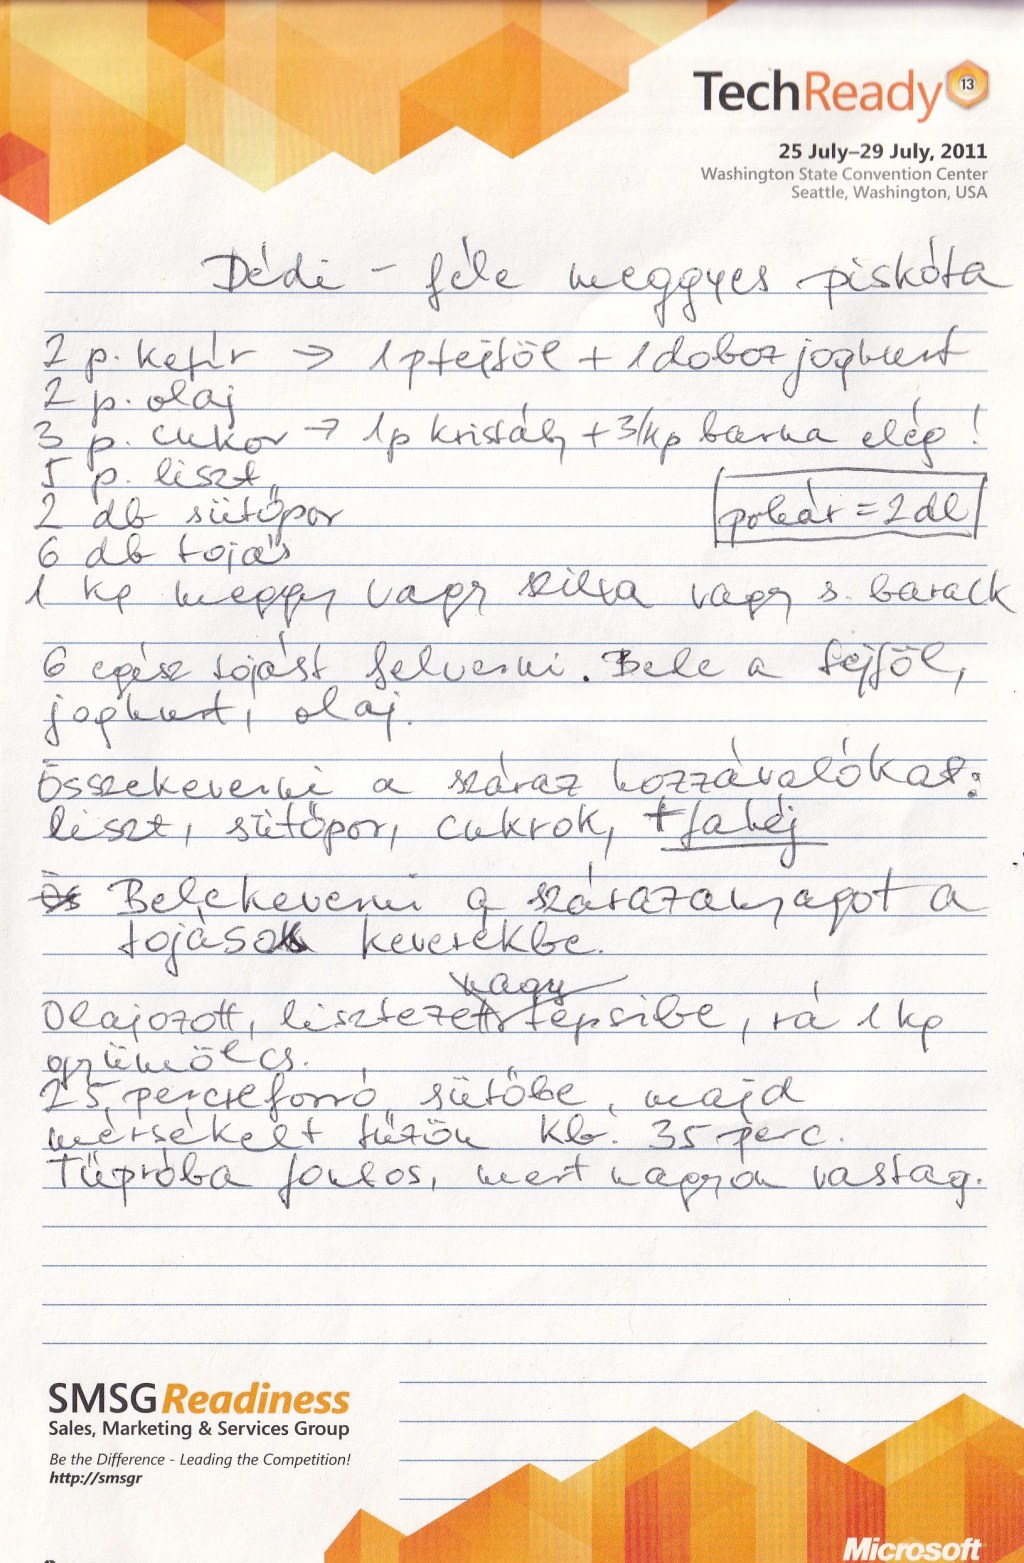 TechReady 13
25 July–29 July, 2011
Washington State Convention Center
Seattle, Washington, USA
Dédi - féle meggyes piskóta
2 p. kefír → 1 p tejföl + 1 doboz joghurt
2 p. olaj
3 p. cukor → 1 p kristály + 3/4 p barna elég!
5 p. liszt
2 db sütőpor
pohár = 2 dl
6 db tojás
1 kg meggy vagy szilva vagy s. barack
6 egész tojást felverni. Bele a tejföl,
joghurt, olaj.
Összekeverni a száraz hozzávalókat:
liszt, sütőpor, cukrok, + fahéj
Belekeverni a szárazanyagot a
tojásos keverékbe.
nagy
Olajozott, lisztezett tepsibe, rá 1 kg
gyümölcs.
25 percre forró sütőbe, majd
mérsékelt tűzön kb. 35 perc.
Tűpróba fontos, mert nagyon vastag.
SMSG Readiness
Sales, Marketing & Services Group
Be the Difference - Leading the Competition!
http://smsgr
Microsoft